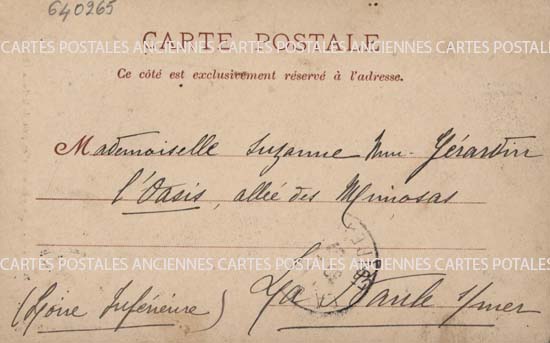 640265
CARTE POSTALE
CARTES POSTALES ANCIENNES CARTES POSTALES ANCIENNES CARTES POSTALES
Ce côté est exclusivement réservé à l'adresse.
Mademoiselle Suzanne Gérardin
l'Oasis, allée des Mimosas
CARTES POSTALES ANCIENNES CARTES POSTALES ANCIENNES CARTES POSTALES
(Loire Inférieure) La Baule s/mer